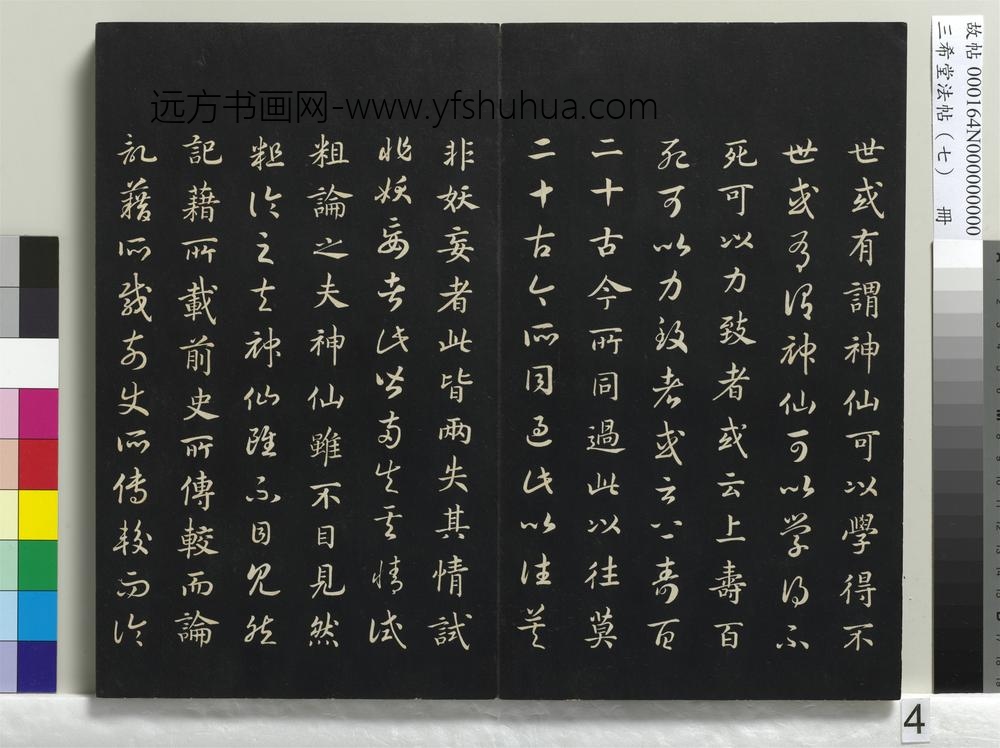 远方书画网-www.yfshuhua.com
故帖 000164N000000000
三希堂法帖（七） 冊
世或有謂神仙可以學得不
世或有謂神仙可以学得不
死可以力致者或云上壽百
死可以力致者或云上壽百
二十古今所同過此以往莫
二十古今所同過此以往莫
非妖妄者此皆兩失其情試
非妖妄者此皆兩失其情試
粗論之夫神仙雖不目見然
粗論之夫神仙雖不目見然
記藉所載前史所傳較而論
記藉所載前史所傳較而論
4